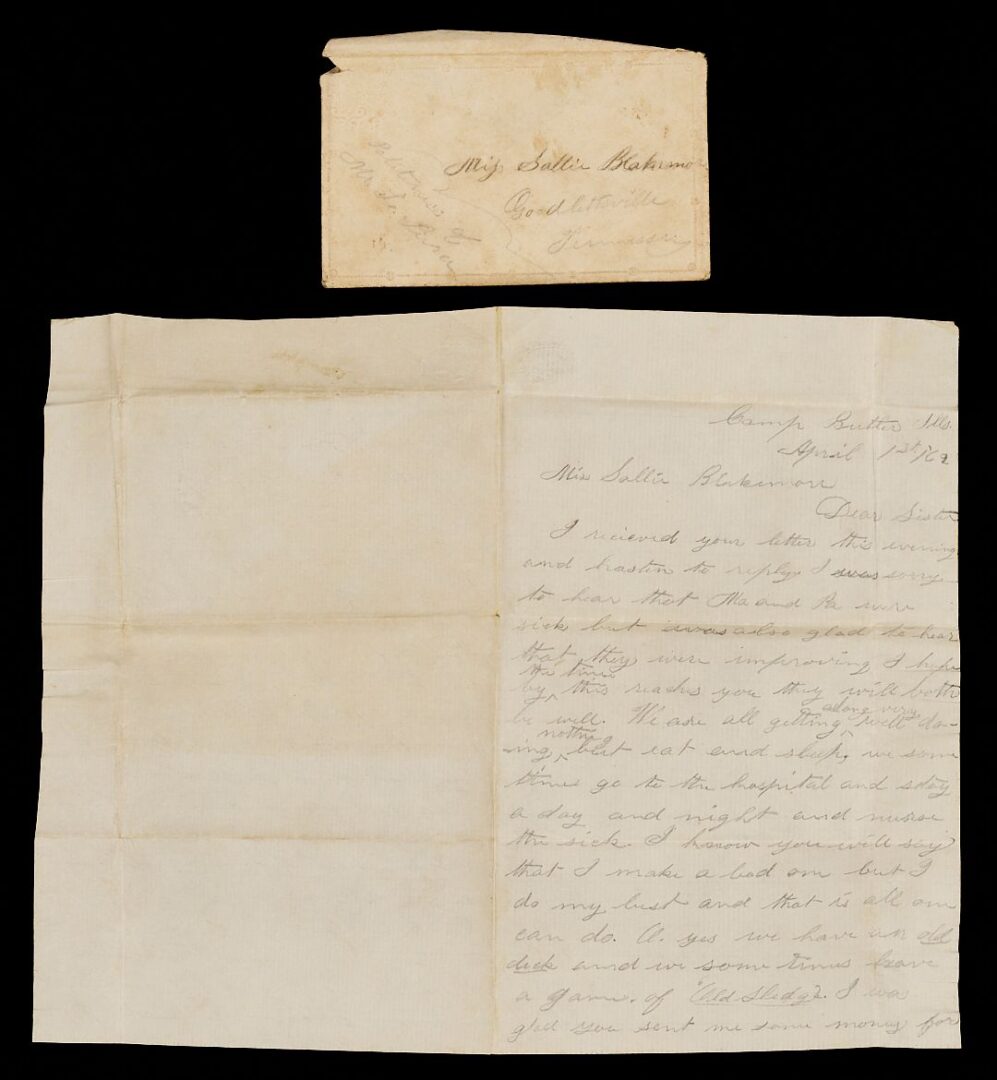 Miss Sallie Blakemor
Goodlettsville
Tennessee
Politeness of
Camp Butler Ills.
April 1st /62
Miss Sallie Blakemore
Dear Sister
I recieved your letter this evening
and hasten to reply I was sorry
to hear that Ma and Pa were
sick but was also glad to hear
that they were improving I hope
the time
by this reaches you they will both
along very
be well. We are all getting well do-
nothing
ing but eat and sleep, we some
times go to the hospital and stay
a day and night and nurse
the sick. I know you will say
that I make a bad one but I
do my best and that is all one
can do. O. yes we have an old
deck and we some times have
a game. of "Old Sledge". I was
glad you sent me some money for